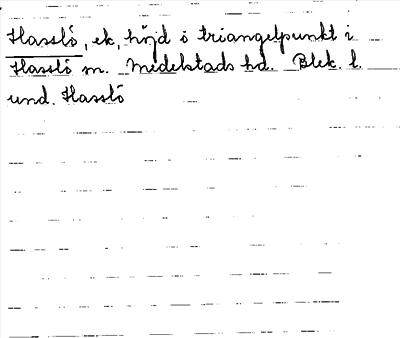 Hassló, ek, höjd o triangelpunkt i
Hassló m. Medelstads hd. Blek. l.
und. Hassló